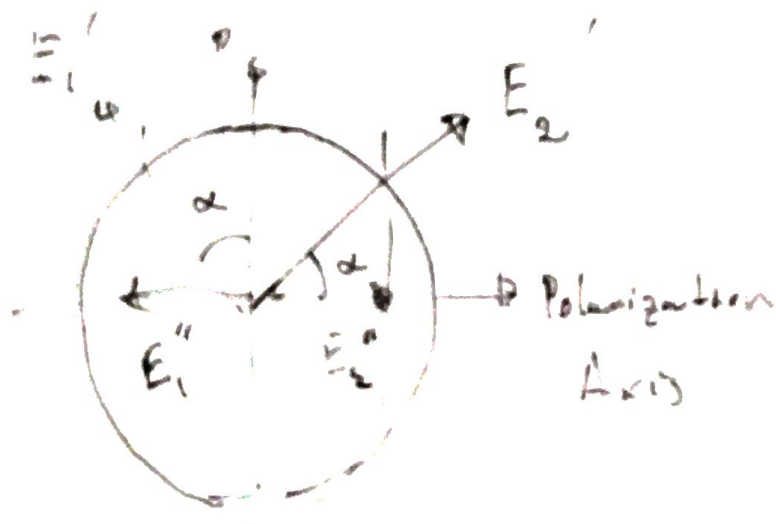 E₁'
E₂'
α
α
E₁"
E₂"
Polarization
Axis